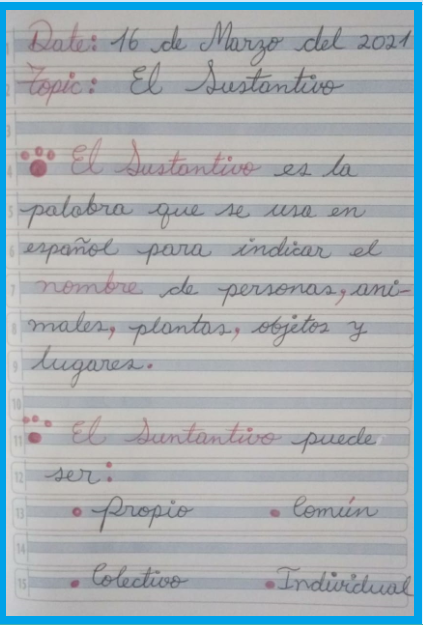 Date: 16 de Marzo del 2021
Topic: El Sustantivo
El Sustantivo es la
palabra que se usa en
español para indicar el
nombre de personas, ani-
males, plantas, objetos y
lugares.
El Suntantivo puede
ser:
• Propio • Común
• Colectivo • Individual